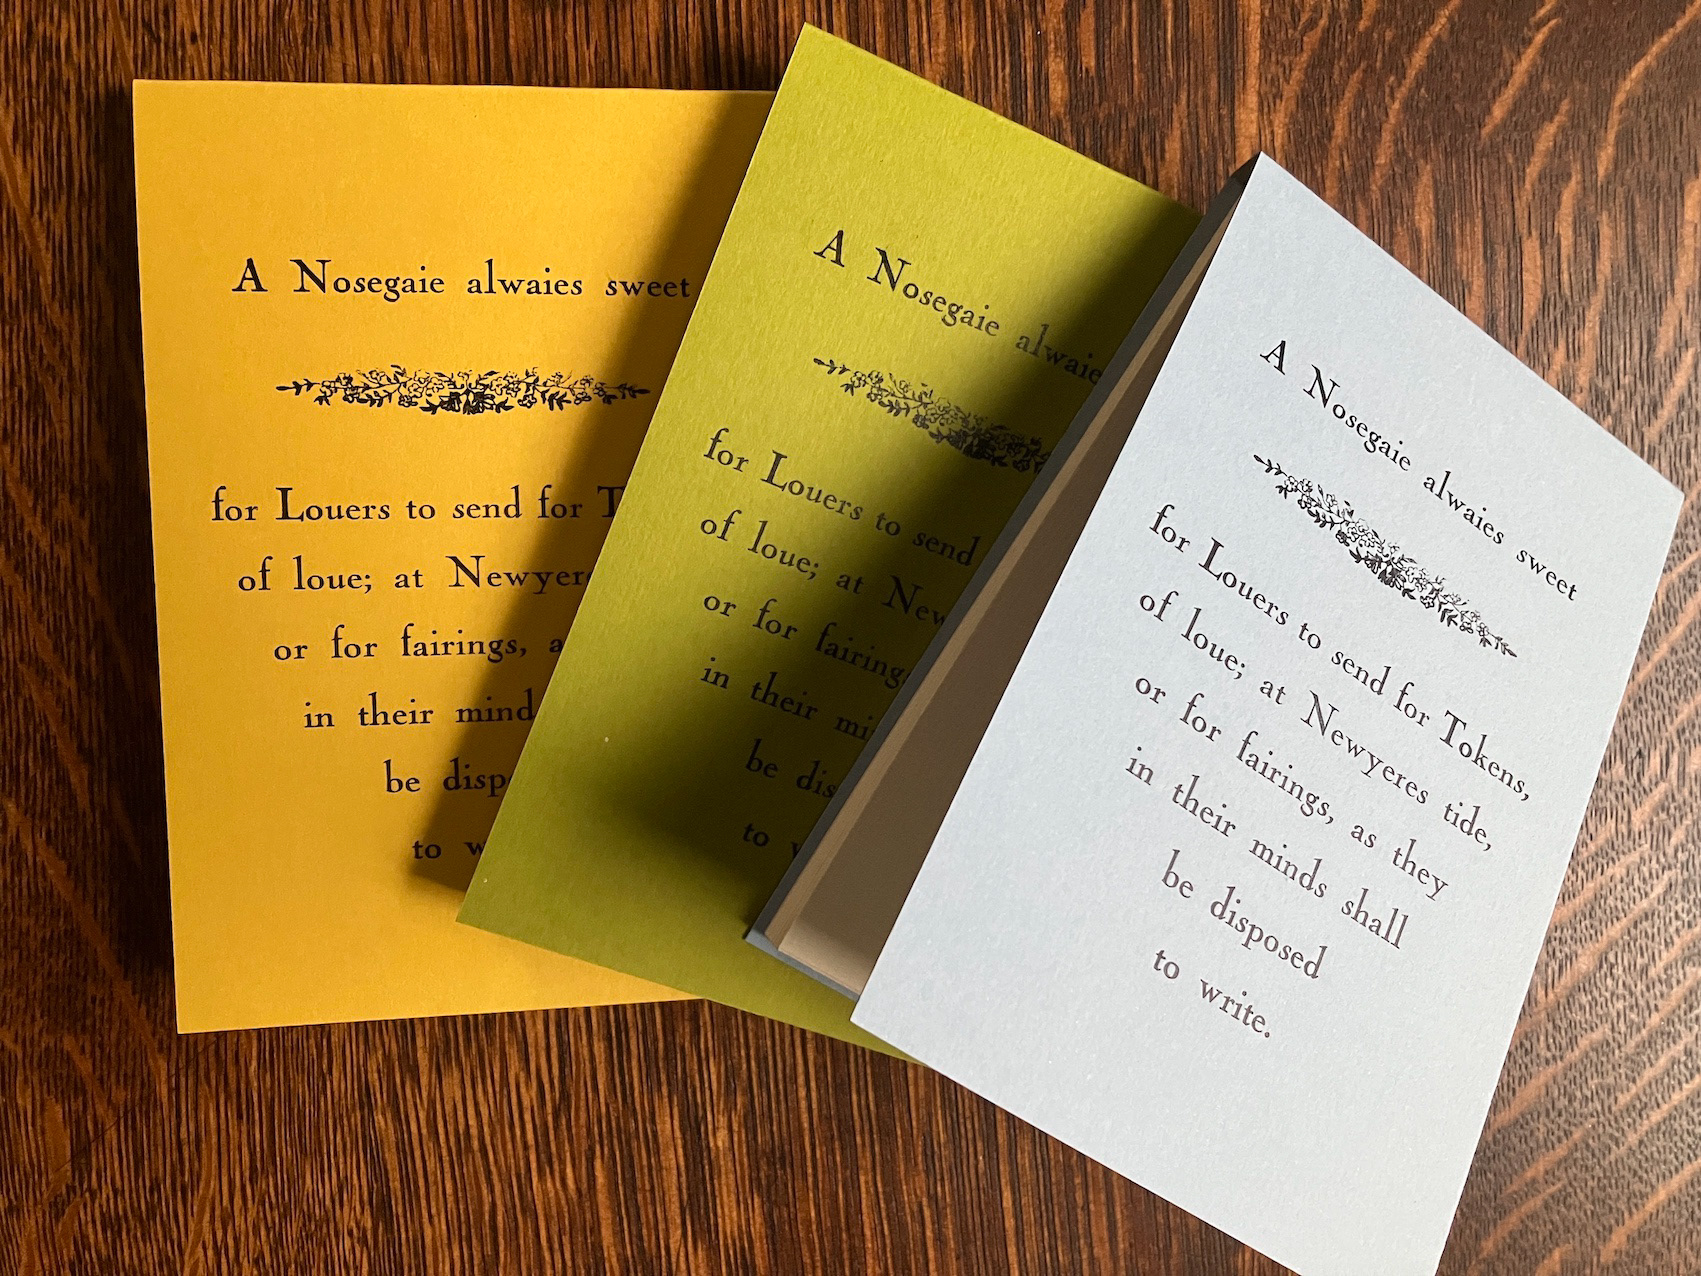 A Nosegaie alwaies sweet
for Louers to send for T
of loue; at Newyer
or for fairings, a
in their mind
be disp
to w
A Nosegaie alwaie
for Louers to send
of loue; at New
or for fairing
in their mi
be dis
to w
A Nosegaie alwaies sweet
for Louers to send for Tokens,
of loue; at Newyeres tide,
or for fairings, as they
in their minds shall
be disposed
to write.